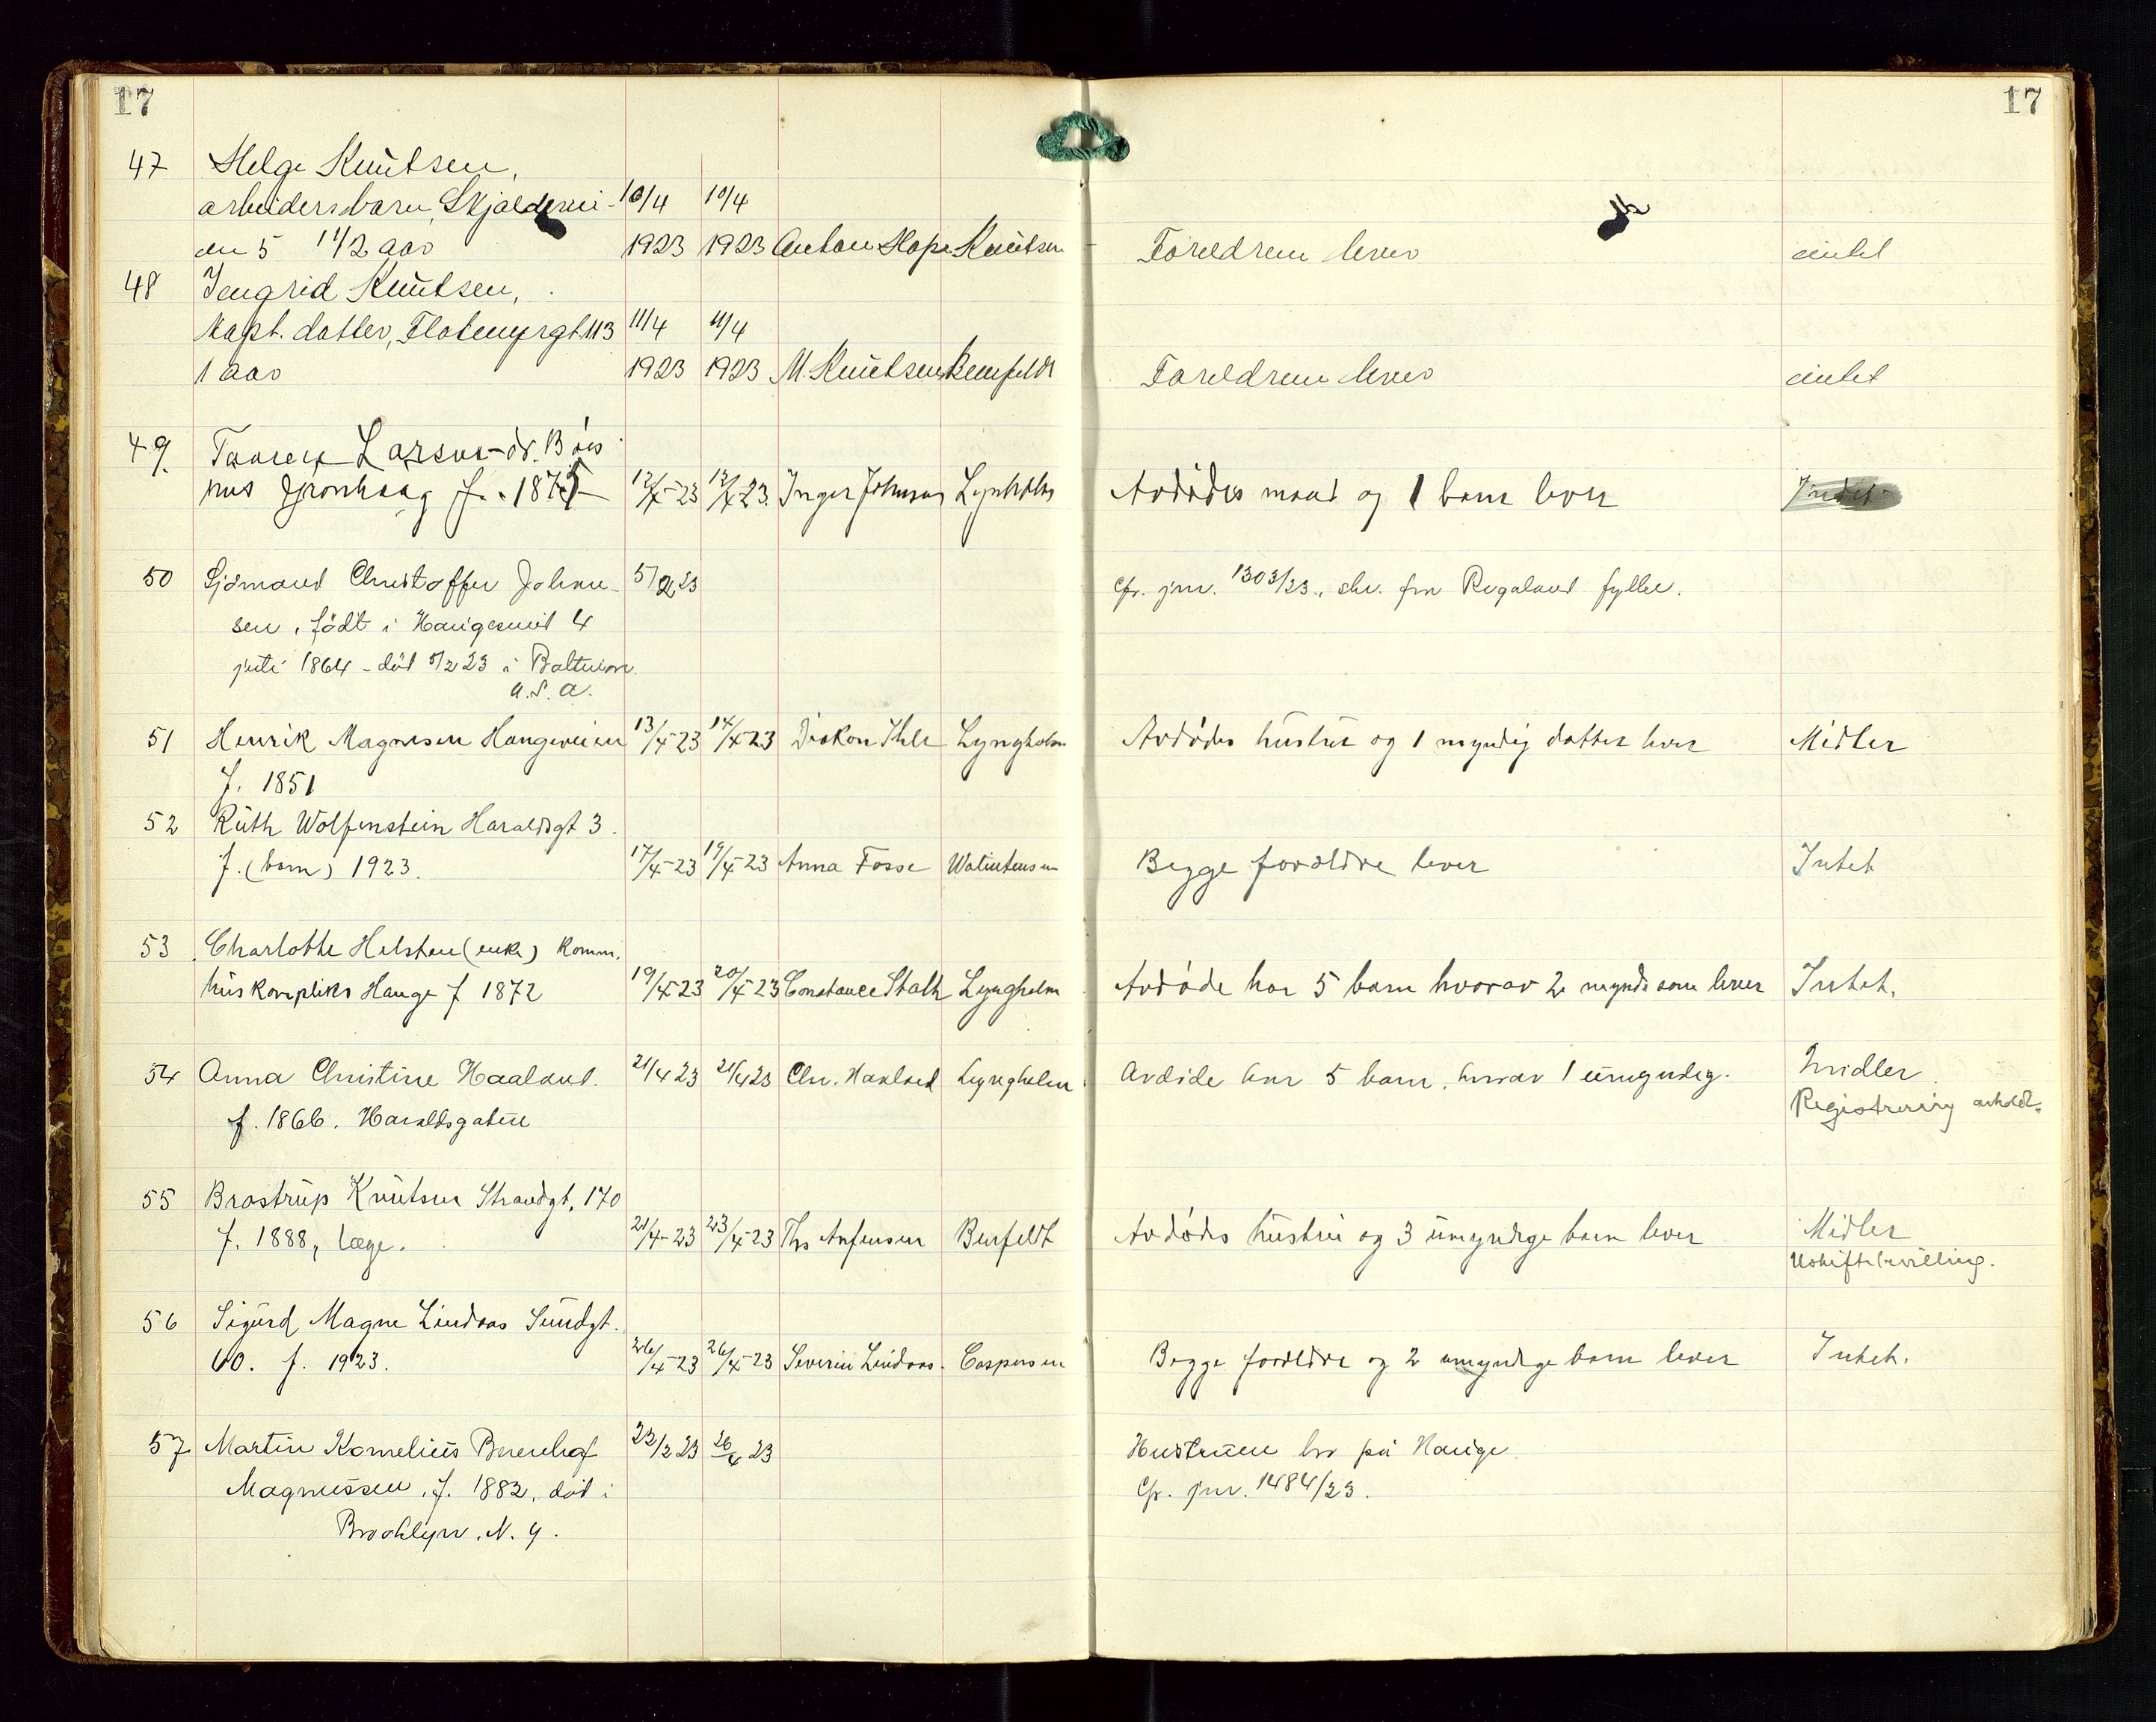 17
17
47 Helge Knutsen,
arbeidersbarn, Skjoldevei- 10/4 10/4
en 5 1 1/2 aar 1923 1923 Anton Hope Knutsen Foreldrene lever intet
48 Ingrid Knutsen,
Kapt. datter, Flotmyrgt. 113 11/4 11/4
1 aar 1923 1923 M. Knutsen Benfeldt Foreldrene lever intet
49. Larsen
f. 1875 12/4-23 12/4-23. Inger Johnsen Lynholm Avdødes mand og 1 barn lever Intet
50 Sjømand Christoffer Johan- 5/2 23 Cfr. jnr. 1303/23., skr. fra Rogaland fylke.
sen, født i Haugesund 4
juli 1864 - död 5/2 23 i Baltimore
U.S.A.
51 Henrik Magnesen Haugeveien 13/4-23 14/4-23 Diakon Ihle Lyngholm Avdødes hustru og 1 myndig datter lever Midler
f. 1851
52 Ruth Wolfenstein Haraldsgt 3.
f. (barn) 1923. 17/4-23 19/4-23 Anna Fosse Begge forældre lever Intet
53 Charlotte Helsten (enke) Komm.
huskompleks Hauge f 1872 19/4-23 20/4-23 Constance Stolk Lyngholm Avdøde har 5 barn hvorav 2 mynd. som lever Intet.
54 Anna Christine Haaland. 21/4 23 21/4 23 Chr. Haaland Lyngholm Avdøde har 5 barn, hvorav 1 umyndig. Midler
f. 1866. Haraldsgaten Registrering avholdt.
55 Brostrup Knutsen Strandgt. 170
f. 1888, læge. 21/4-23 23/4-23 Ths Anfensen Benfeldt Avdødes hustru og 3 umyndige barn lever Midler
Uskiftebevilling.
56 Sigurd Magne Lindaas Sundgt.
60. f. 1923. 26/4-23 26/4-23 Severin Lindaas. Caspersen Begge forældre og 2 umyndige barn lever Intet.
57. Martin Kornelius Berenhof 23/2 23 26/4 23 Hustruen bor på Hauge.
Magnussen, f. 1882, död i Cfr. jnr. 1484/23.
Brooklyn, N.Y.